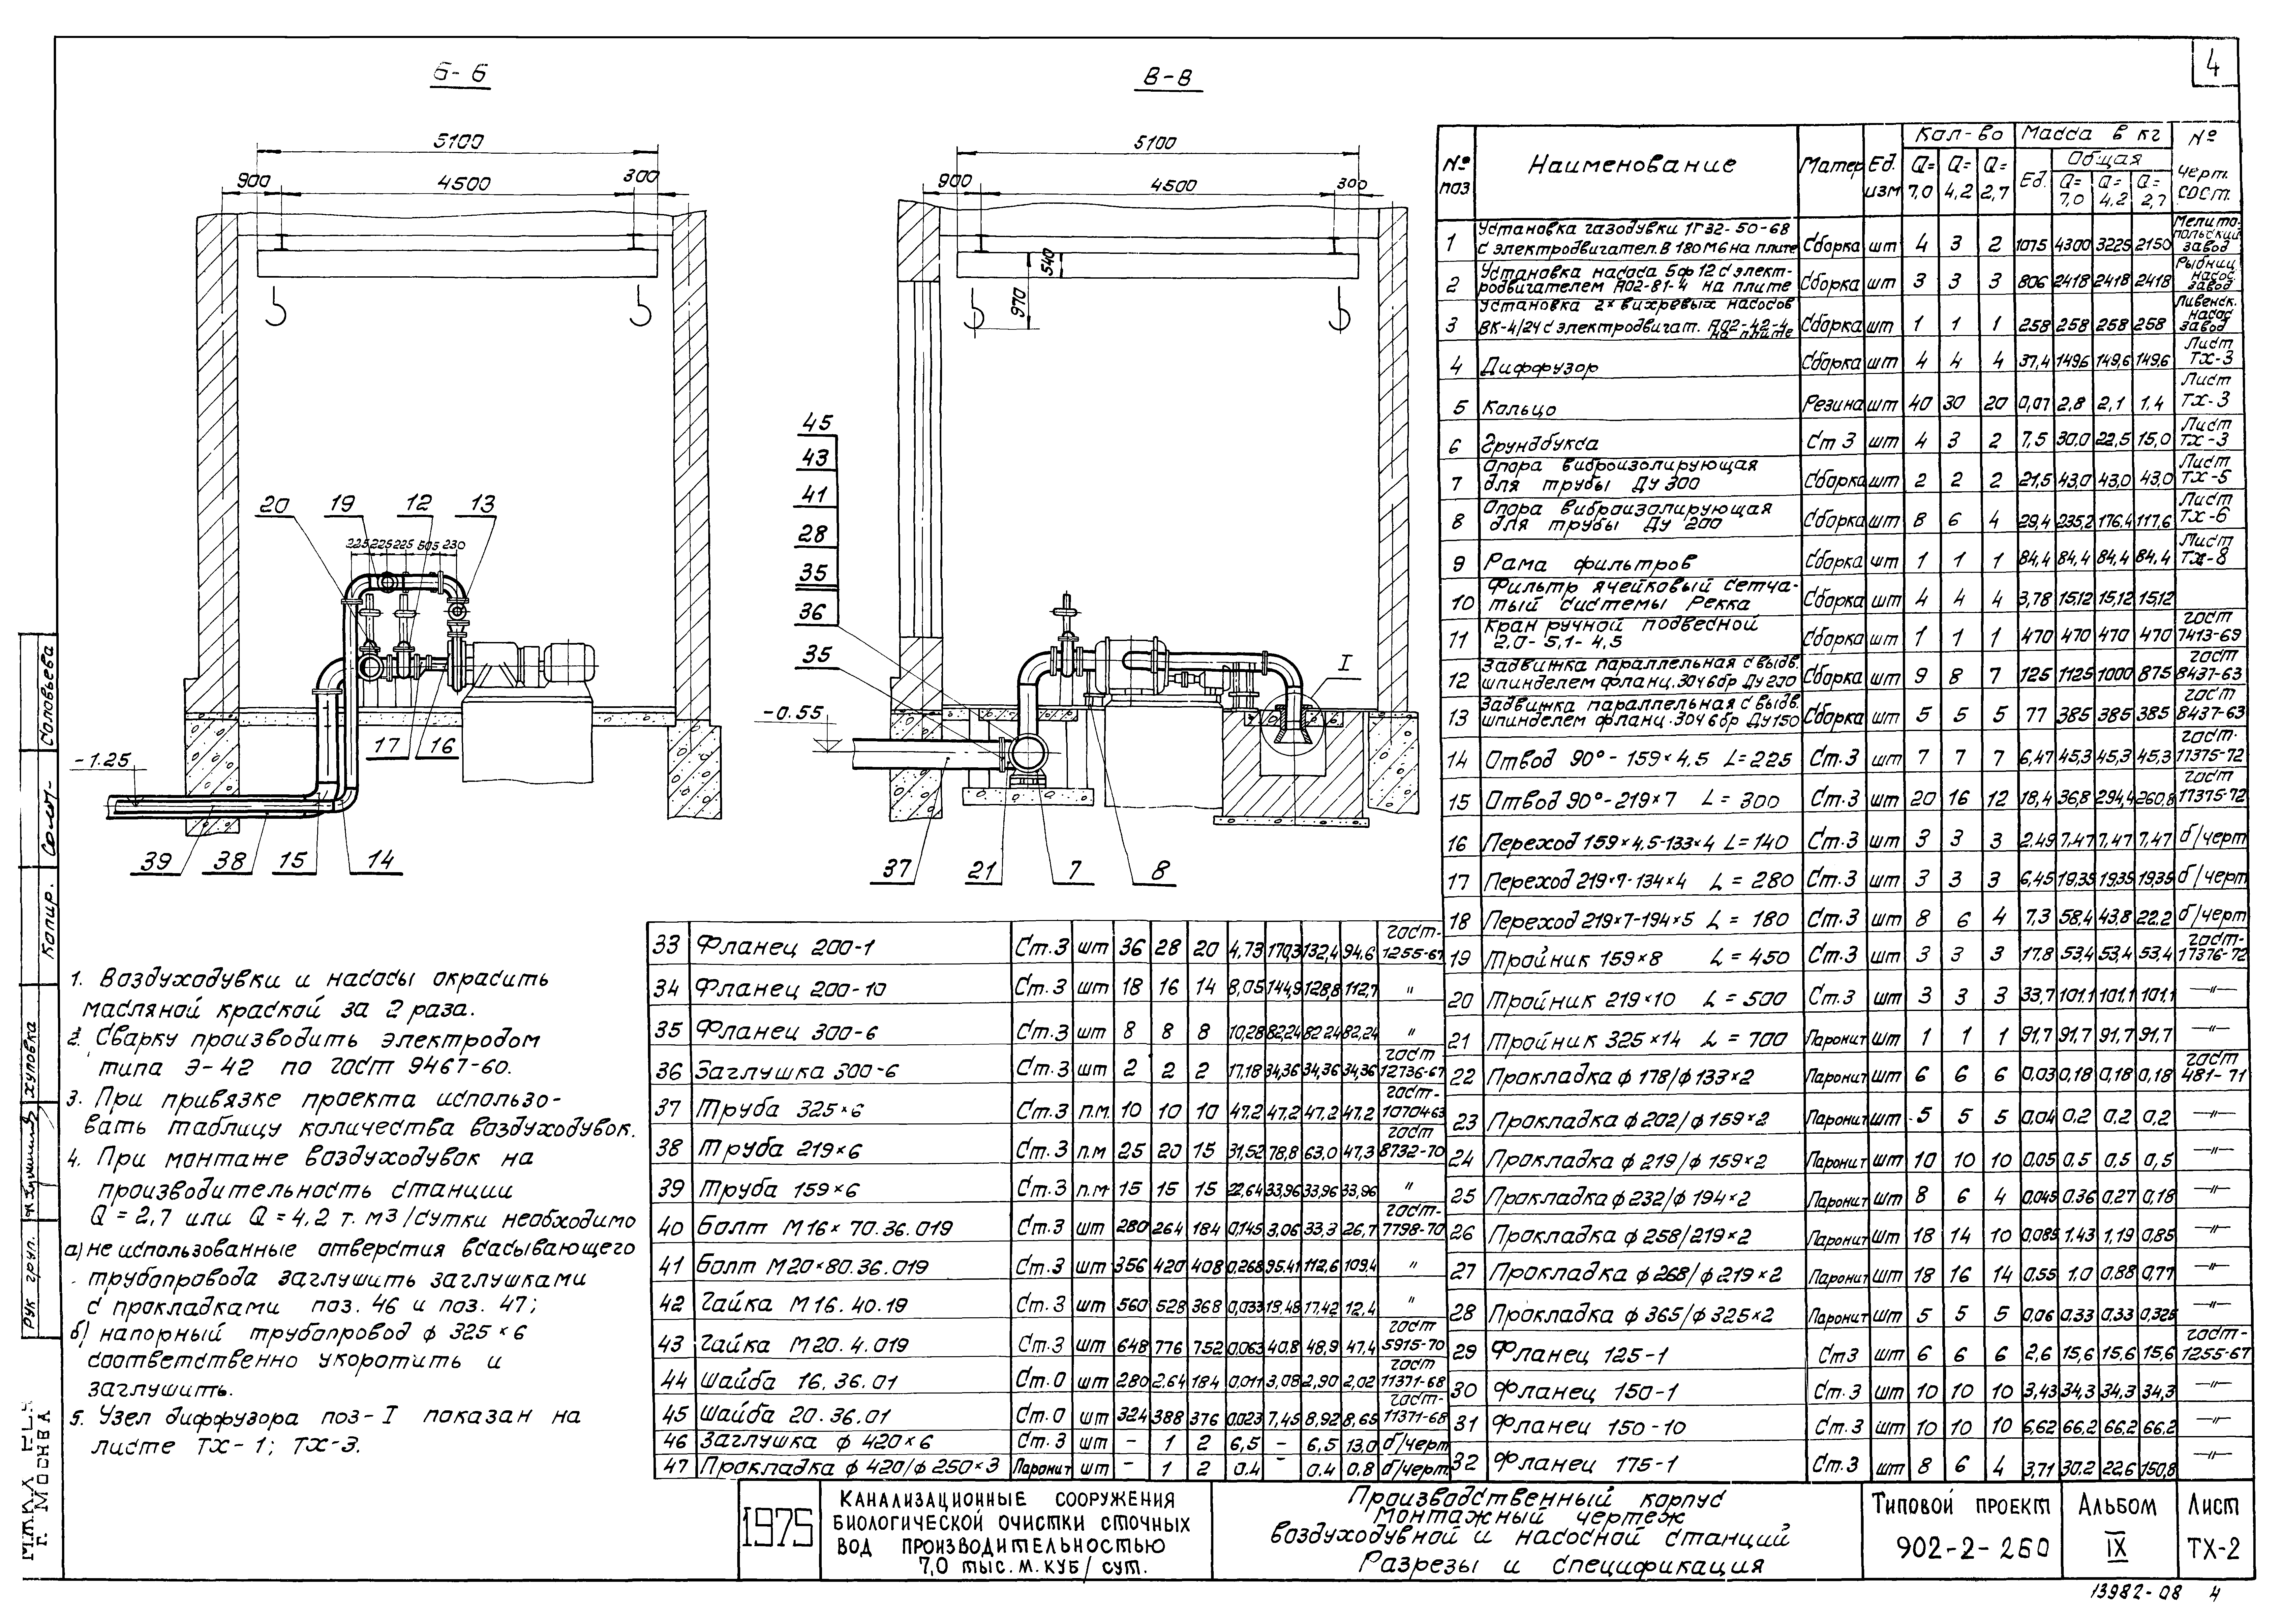 4
Б-Б
5100
900
4500
300
20
19
12
13
225
225
225
505
230
17
16
-1.25
39
38
15
14
В-В
5100
900
4500
300
540
970
45
43
41
28
35
36
35
I
-0.55
37
21
7
8
1. Воздуходувки и насосы окрасить
масляной краской за 2 раза.
2. Сварку производить электродом
типа Э-42 по гост 9467-60.
3. При привязке проекта использо-
вать таблицу количества воздуходувок.
4. При монтаже воздуходувок на
производительность станции
Q = 2,7 или Q = 4,2 т. м3/сутки необходимо
а) не использованные отверстия всасывающего
трубопровода заглушить заглушками
с прокладками поз. 46 и поз. 47;
б) напорный трубопровод ф 325×6
соответственно укоротить и
заглушить.
5. Узел диффузора поз-I показан на
листе ТХ-1; ТХ-3.
№ поз Наименование Матер Ед. изм Кол-во Масса в кг № черт. гост.
Q=7,0 Q=4,2 Q=2,7 Ед. Общая Q=7,0 Q=4,2 Q=2,7
1 Установка газодувки 1Г32-50-68 с электродвигател. В 180 М6 на плите Сборка шт 4 3 2 1075 4300 3225 2150 Мелитопольский завод
2 Установка насоса 5ф12 с электродвигателем АО2-81-4 на плите Сборка шт 3 3 3 806 2418 2418 2418 Рыбниц. насос. завод
3 Установка 2х вихревых насосов ВК-4/24 с электродвигат. АО2-42-4 на плите Сборка шт 1 1 1 258 258 258 258 Ливенск. насос завод
4 Диффузор Сборка шт 4 4 4 37,4 149,6 149,6 149,6 Лист ТХ-3
5 Кольцо Резина шт 40 30 20 0,07 2,8 2,1 1,4 Лист ТХ-3
6 Грундбукса Ст 3 шт 4 3 2 7,5 30,0 22,5 15,0 Лист ТХ-3
7 Опора виброизолирующая для трубы Ду 300 Сборка шт 2 2 2 21,5 43,0 43,0 43,0 Лист ТХ-5
8 Опора виброизолирующая для трубы Ду 200 Сборка шт 8 6 4 29,4 235,2 176,4 117,6 Лист ТХ-6
9 Рама фильтров Сборка шт 1 1 1 84,4 84,4 84,4 84,4 Лист ТХ-8
10 Фильтр ячейковый сетчатый системы Рекка Сборка шт 4 4 4 3,78 15,12 15,12 15,12
11 Кран ручной подвесной 2,0-5,1-4,5 Сборка шт 1 1 1 470 470 470 470 гост 7413-69
12 Задвижка параллельная с выдв. шпинделем фланц. 30ч6бр Ду 200 Сборка шт 9 8 7 125 1125 1000 875 гост 8437-63
13 Задвижка параллельная с выдв. шпинделем фланц. 30ч6бр Ду 150 Сборка шт 5 5 5 77 385 385 385 гост 8437-63
14 Отвод 90°-159×4,5 L=225 Ст.3 шт 7 7 7 6,47 45,3 45,3 45,3 гост. 17375-72
15 Отвод 90°-219×7 L=300 Ст.3 шт 20 16 12 18,4 36,8 294,4 260,8 гост 17375-72
16 Переход 159×4,5-133×4 L=140 Ст.3 шт 3 3 3 2,49 7,47 7,47 7,47 б/черт
17 Переход 219×7-134×4 L=280 Ст.3 шт 3 3 3 6,45 19,35 19,35 19,35 б/черт
18 Переход 219×7-194×5 L=180 Ст.3 шт 8 6 4 7,3 58,4 43,8 22,2 б/черт
19 Тройник 159×8 L=450 Ст.3 шт 3 3 3 17,8 53,4 53,4 53,4 гост-17376-72
20 Тройник 219×10 L=500 Ст.3 шт 3 3 3 33,7 101,1 101,1 101,1 —"—
21 Тройник 325×14 L=700 Паронит шт 1 1 1 91,7 91,7 91,7 91,7 —"—
22 Прокладка ф 178/ф 133×2 Паронит шт 6 6 6 0,03 0,18 0,18 0,18 гост 481-71
23 Прокладка ф 202/ф 159×2 Паронит шт 5 5 5 0,04 0,2 0,2 0,2 —"—
24 Прокладка ф 219/ф 159×2 Паронит шт 10 10 10 0,05 0,5 0,5 0,5 —"—
25 Прокладка ф 232/ф 194×2 Паронит шт 8 6 4 0,045 0,36 0,27 0,18 —"—
26 Прокладка ф 258/219×2 Паронит шт 18 14 10 0,085 1,43 1,19 0,85 —"—
27 Прокладка ф 268/ф 219×2 Паронит шт 18 16 14 0,55 1,0 0,88 0,77 —"—
28 Прокладка ф 365/ф 325×2 Паронит шт 5 5 5 0,06 0,33 0,33 0,325 —"—
29 Фланец 125-1 Ст3 шт 6 6 6 2,6 15,6 15,6 15,6 гост-1255-67
30 Фланец 150-1 Ст.3 шт 10 10 10 3,43 34,3 34,3 34,3 —"—
31 Фланец 150-10 Ст.3 шт 10 10 10 6,62 66,2 66,2 66,2 —"—
32 Фланец 175-1 Ст.3 шт 8 6 4 3,71 30,2 22,6 150,8 —"—
33 Фланец 200-1 Ст.3 шт 36 28 20 4,73 170,3 132,4 94,6 гост-1255-67
34 Фланец 200-10 Ст.3 шт 18 16 14 8,05 144,9 128,8 112,7 "
35 Фланец 300-6 Ст.3 шт 8 8 8 10,28 82,24 82,24 82,24 "
36 Заглушка 300-6 Ст.3 шт 2 2 2 17,18 34,36 34,36 34,36 гост 12736-67
37 Труба 325×6 Ст.3 п.м. 10 10 10 47,2 47,2 47,2 47,2 гост-10704-63
38 Труба 219×6 Ст.3 п.м 25 20 15 31,52 78,8 63,0 47,3 гост 8732-70
39 Труба 159×6 Ст.3 п.м 15 15 15 22,64 33,96 33,96 33,96 "
40 Болт М16×70.36.019 Ст.3 шт 280 264 184 0,145 3,06 33,3 26,7 гост-7798-70
41 Болт М20×80.36.019 Ст.3 шт 356 420 408 0,268 95,41 112,6 109,4 "
42 Гайка М16.40.19 Ст.3 шт 560 528 368 0,033 18,48 17,42 12,4 "
43 Гайка М20.4.019 Ст.3 шт 648 776 752 0,063 40,8 48,9 47,4 гост 5915-70
44 Шайба 16.36.01 Ст.0 шт 280 2,64 184 0,011 3,08 2,90 2,02 гост 11371-68
45 Шайба 20.36.01 Ст.0 шт 324 388 376 0,023 7,45 8,92 8,65 гост-11371-68
46 Заглушка ф 420×6 Ст.3 шт - 1 2 6,5 - 6,5 13,0 б/черт
47 Прокладка ф 420/ф 250×3 Паронит шт - 1 2 0,4 - 0,4 0,8 б/черт.
1975
Канализационные сооружения
биологической очистки сточных
вод производительностью
7,0 тыс.м.куб/сут.
Производственный корпус
Монтажный чертеж
воздуходувной и насосной станций
Разрезы и спецификация
Типовой проект
902-2-260
Альбом
IX
Лист
ТХ-2
13982-08 4
Соловьева
Копир.
Рук груп.
г. Москва